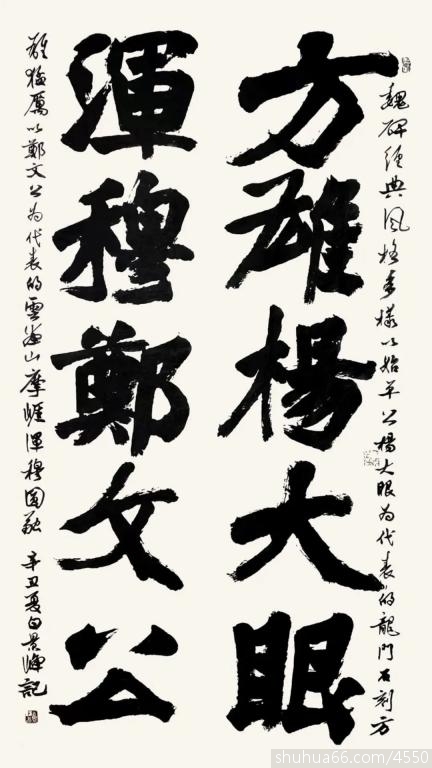 魏碑經典風格多樣以始平公楊大眼為代表的龍門石刻方
方雄楊大眼
渾穆鄭文公
雄猛厲以鄭文公為代表的雲峯山摩崖渾穆圓融 辛丑夏白景峰記
shuhua66.com/4550